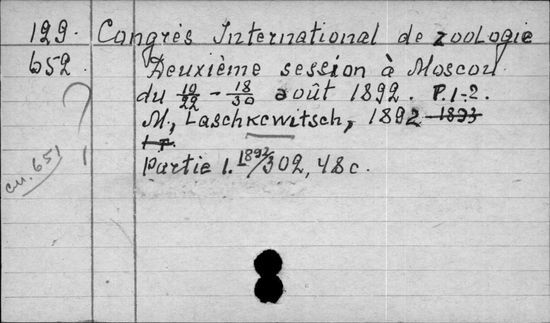 129. Congrès International de zoologie
652. Deuxième session à Moscou
du 10/22 - 18/30 août 1892. P. 1-2.
M., Laschkewitsch, 1892-1893
1 т.
Partie 1. 1892/302, 48 с.
см. 651
?